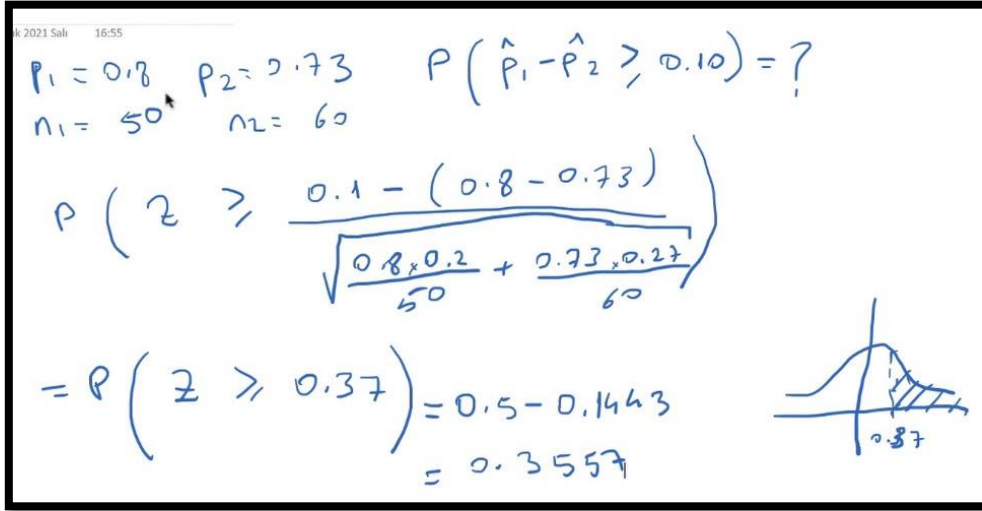 k 2021 Salı 16:55
P₁ = 0.8 P₂ = 0.73 P(p̂₁ - p̂₂ ≥ 0.10) = ?
n₁ = 50 n₂ = 60
P(Z ≥ (0.1 - (0.8 - 0.73)) / √(0.8×0.2/50 + 0.73×0.27/60))
= P(Z ≥ 0.37) = 0.5 - 0.1443
= 0.3557
0.37